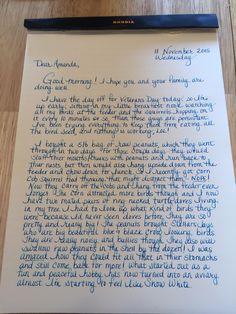 RHODIA
11 November 2015
Wednesday
Dear Amanda,
Good-morning! I hope you and your family are
doing well.
I have the day off for Veterans Day today: so I'm
up early, sitting in my breakfast nook, watching
all my birds at the feeder and the squirrels hopping on
it every 10 minutes or so. Man, those guys are persistent.
I've been trying everything to keep them from eating all
the bird seed, and nothing is working, lol!
I bought a 5 lb bag of raw peanuts, which they went
through in two days. For those couple days, they would
stuff their mouths/cheeks with peanuts and run back to
their nests, but then would also hang upside down from the
feeder and chow down for hours. So I recently got corn
Cob Squirrel Food thinking that might distract them. Nope!
Now they carry off the cobs and hang from the feeder even
longer. The corn attracted more birds though and I now
have two mated pairs of ring-necked turtle-doves living
in my tree. I had to look up what kind of birds they
were because I'd never seen doves before. They are so
pretty and heavy big! The peanuts brought Stellar's Jays
who are big beautiful blue & black crow looking birds.
They are really noisy and bullies though. They also will
swallow raw peanuts in the shell by the dozen! I was
amazed how they could fit all that in their stomachs
and still come back for more. What started out as a
fun and peaceful hobby has turned into an aviary
almost. I'm starting to feel like Snow White.